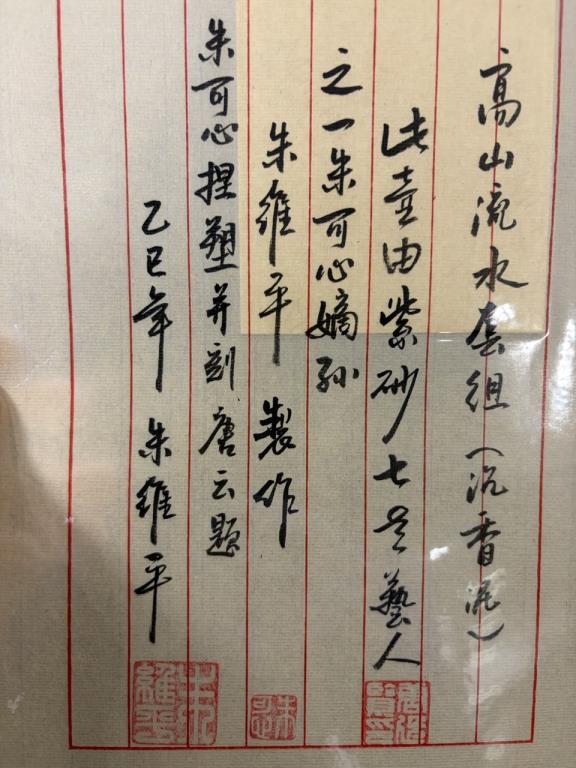 高山流水套组（沉香泥）
此壺由紫砂七老藝人
之一朱可心嫡孙
朱維平 製作
朱可心捏塑并刻唐云题
乙巳年 朱維平
朱維平